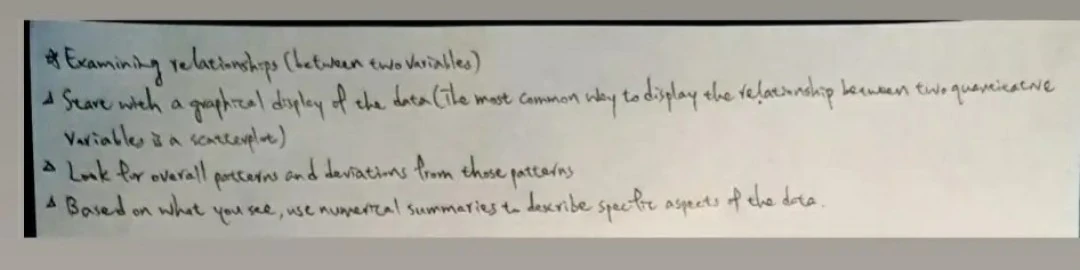 * Examining relationships (between two variables)
△ Start with a graphical display of the data (The most common way to display the relationship between two quantitative
variables is a scatterplot)
△ Look for overall patterns and deviations from those patterns
△ Based on what you see, use numerical summaries to describe specific aspects of the data.